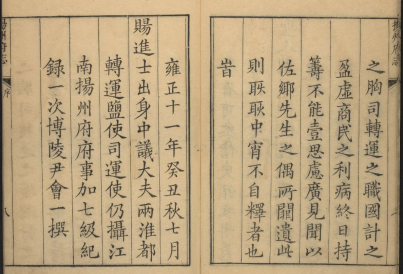 之胸司轉運之職國計之
盈虛商民之利病終日持
籌不能壹思慮廣見聞以
佐鄉先生之偶所闕遺此
則耿耿中宵不自釋者也
旹
雍正十一年癸丑秋七月
賜進士出身中議大夫兩淮都
轉運鹽使司運使仍攝江
南揚州府府事加七級紀
録一次博陵尹會一撰
序
八